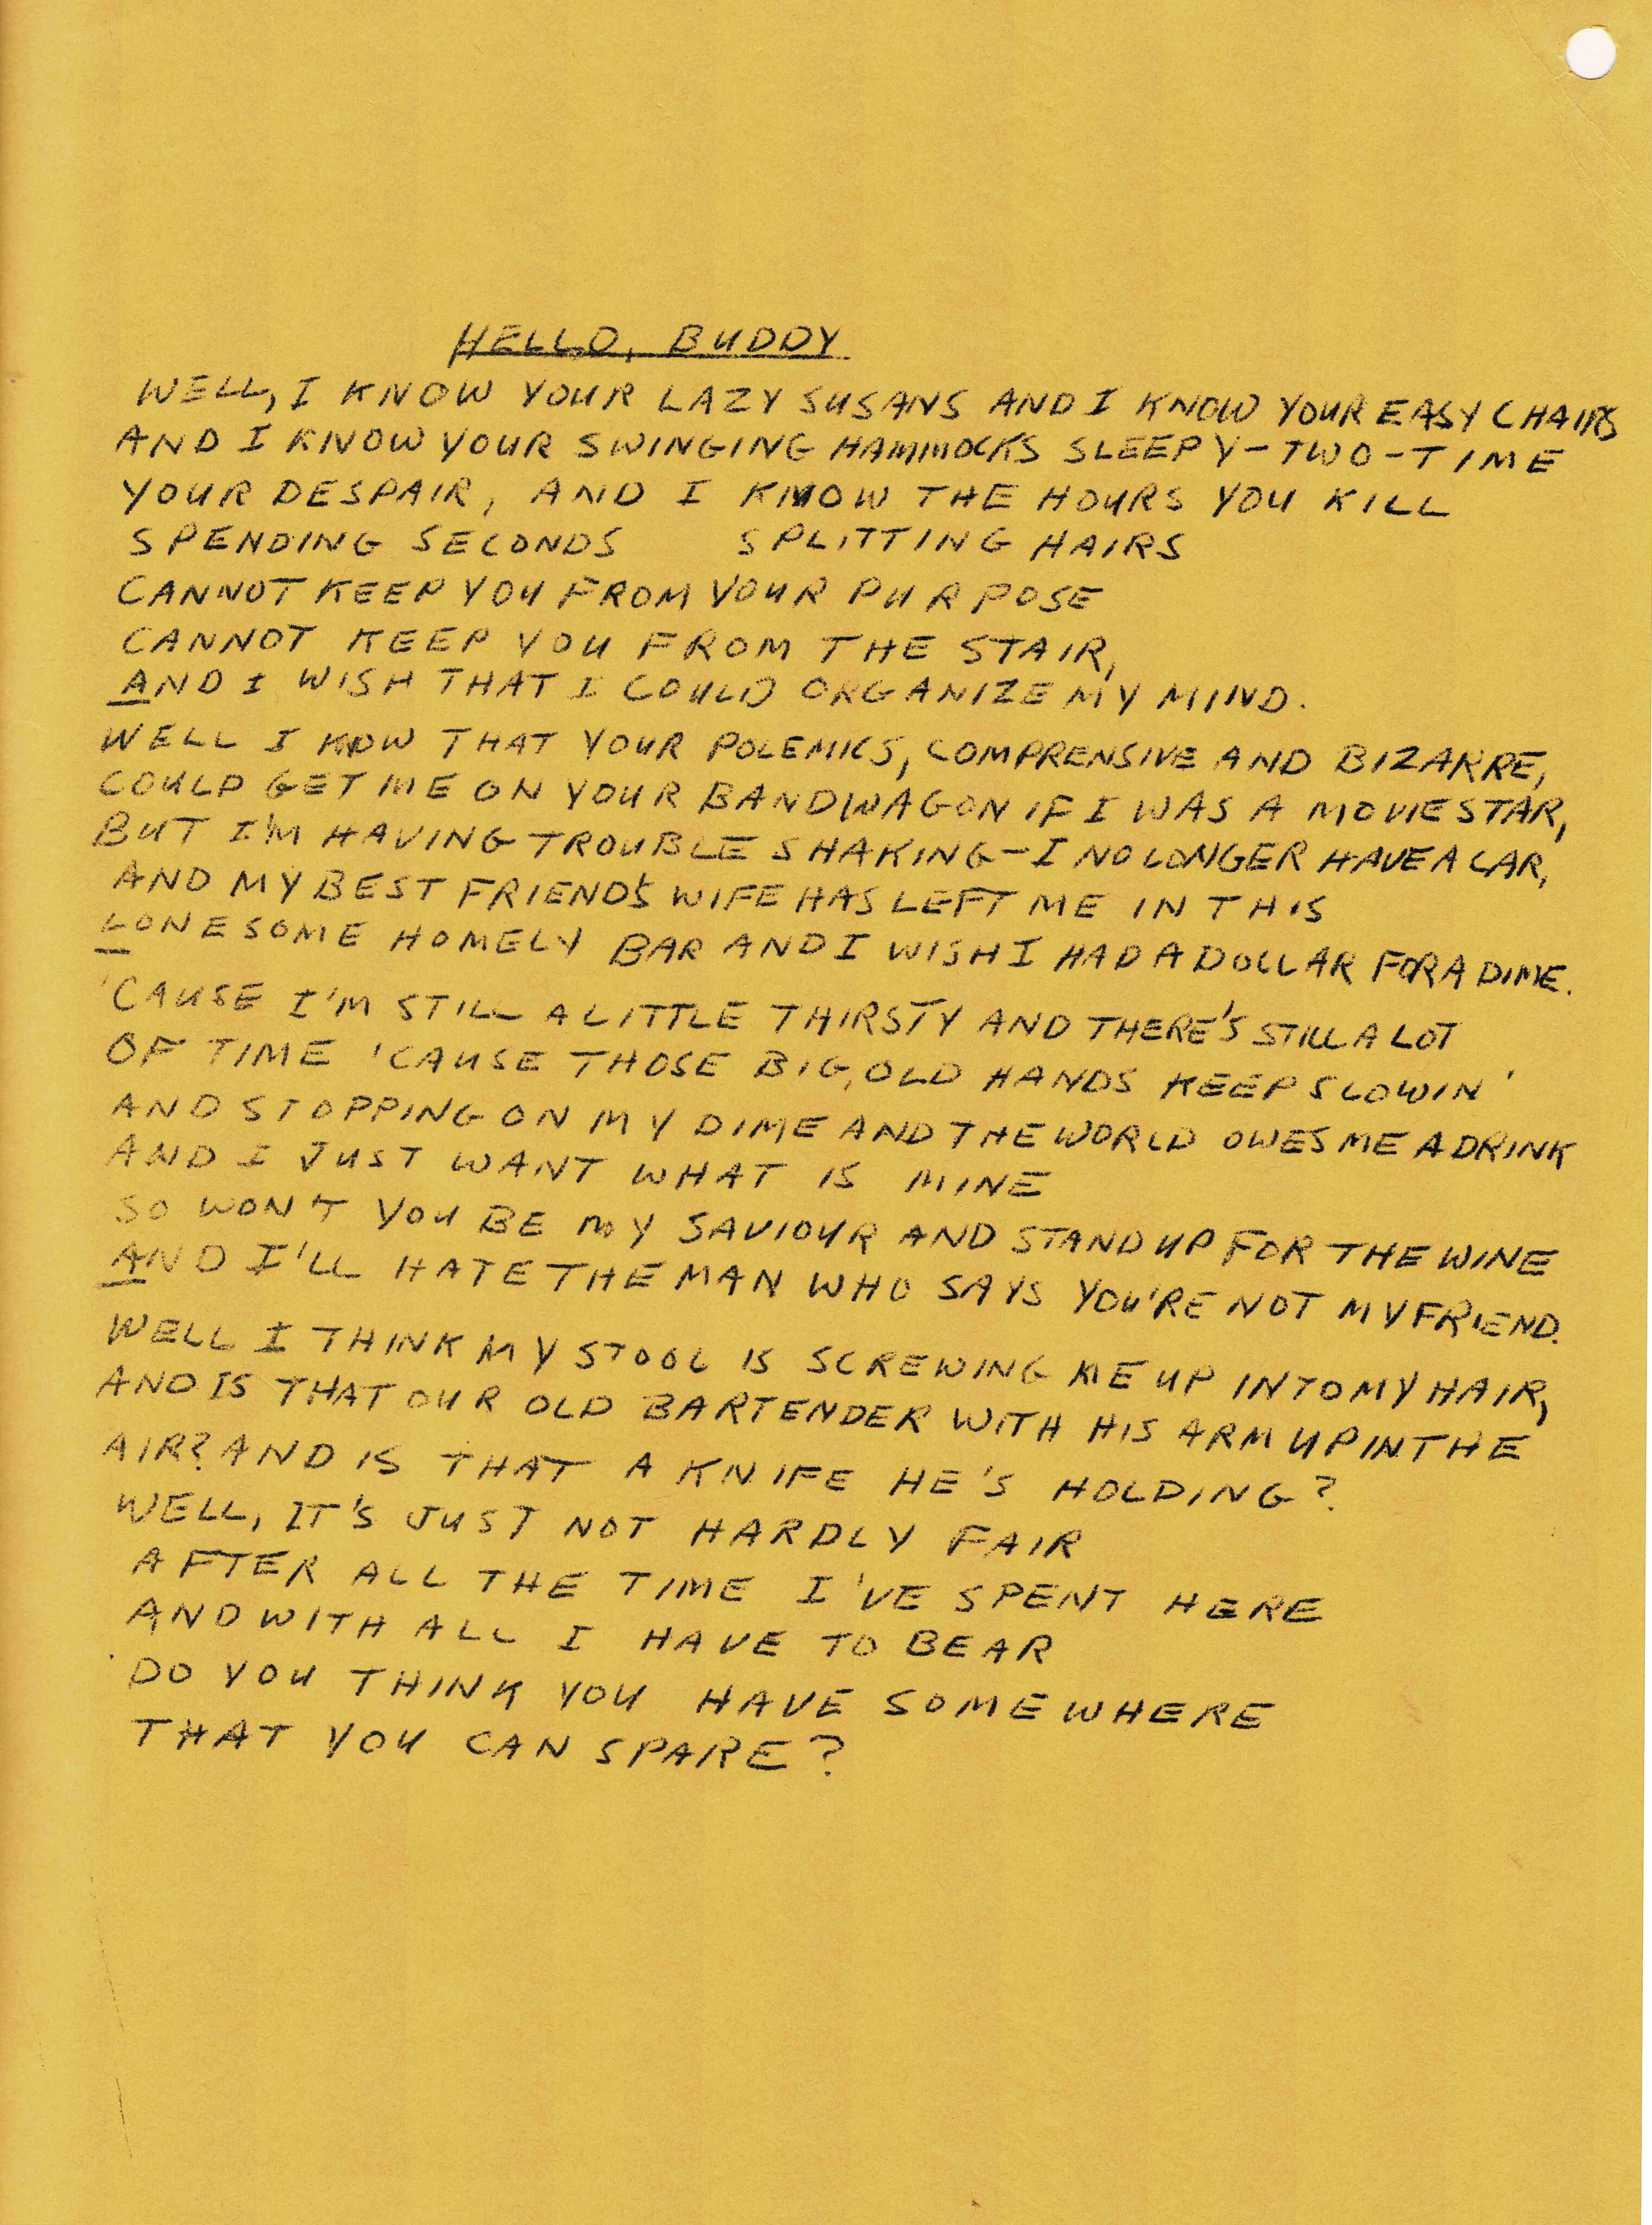 HELLO, BUDDY
WELL, I KNOW YOUR LAZY SUSANS AND I KNOW YOUR EASY CHAIRS
AND I KNOW YOUR SWINGING HAMMOCKS SLEEPY-TWO-TIME
YOUR DESPAIR, AND I KNOW THE HOURS YOU KILL
SPENDING SECONDS SPLITTING HAIRS
CANNOT KEEP YOU FROM YOUR PURPOSE
CANNOT KEEP YOU FROM THE STAIR,
AND I WISH THAT I COULD ORGANIZE MY MIND.
WELL I KNOW THAT YOUR POLEMICS, COMPRENSIVE AND BIZARRE,
COULD GET ME ON YOUR BANDWAGON IF I WAS A MOVIE STAR,
BUT I'M HAVING TROUBLE SHAKING-I NO LONGER HAVE A CAR,
AND MY BEST FRIEND'S WIFE HAS LEFT ME IN THIS
LONESOME HOMELY BAR AND I WISH I HAD A DOLLAR FOR A DIME.
'CAUSE I'M STILL A LITTLE THIRSTY AND THERE'S STILL A LOT
OF TIME 'CAUSE THOSE BIG, OLD HANDS KEEP SLOWIN'
AND STOPPING ON MY DIME AND THE WORLD OWES ME A DRINK
AND I JUST WANT WHAT IS MINE
SO WON'T YOU BE MY SAVIOUR AND STAND UP FOR THE WINE
AND I'LL HATE THE MAN WHO SAYS YOU'RE NOT MY FRIEND.
WELL I THINK MY STOOL IS SCREWING ME UP INTO MY HAIR,
AND IS THAT OUR OLD BARTENDER WITH HIS ARM UP IN THE
AIR? AND IS THAT A KNIFE HE'S HOLDING?
WELL, IT'S JUST NOT HARDLY FAIR
AFTER ALL THE TIME I'VE SPENT HERE
AND WITH ALL I HAVE TO BEAR
DO YOU THINK YOU HAVE SOMEWHERE
THAT YOU CAN SPARE?